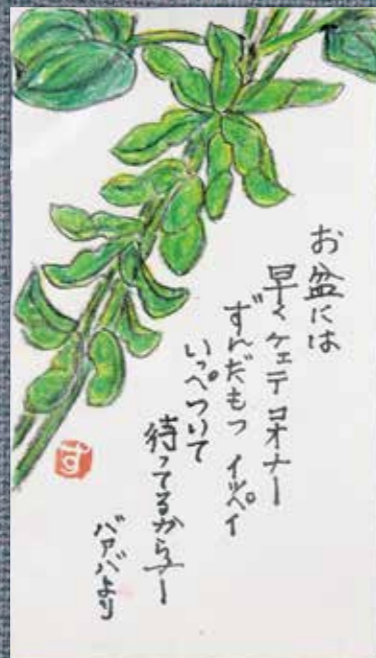 お盆には
早くケェテコオナー
ずんだもつ イッペイ
いっぺついて
待ってるからナー
バァバより
す